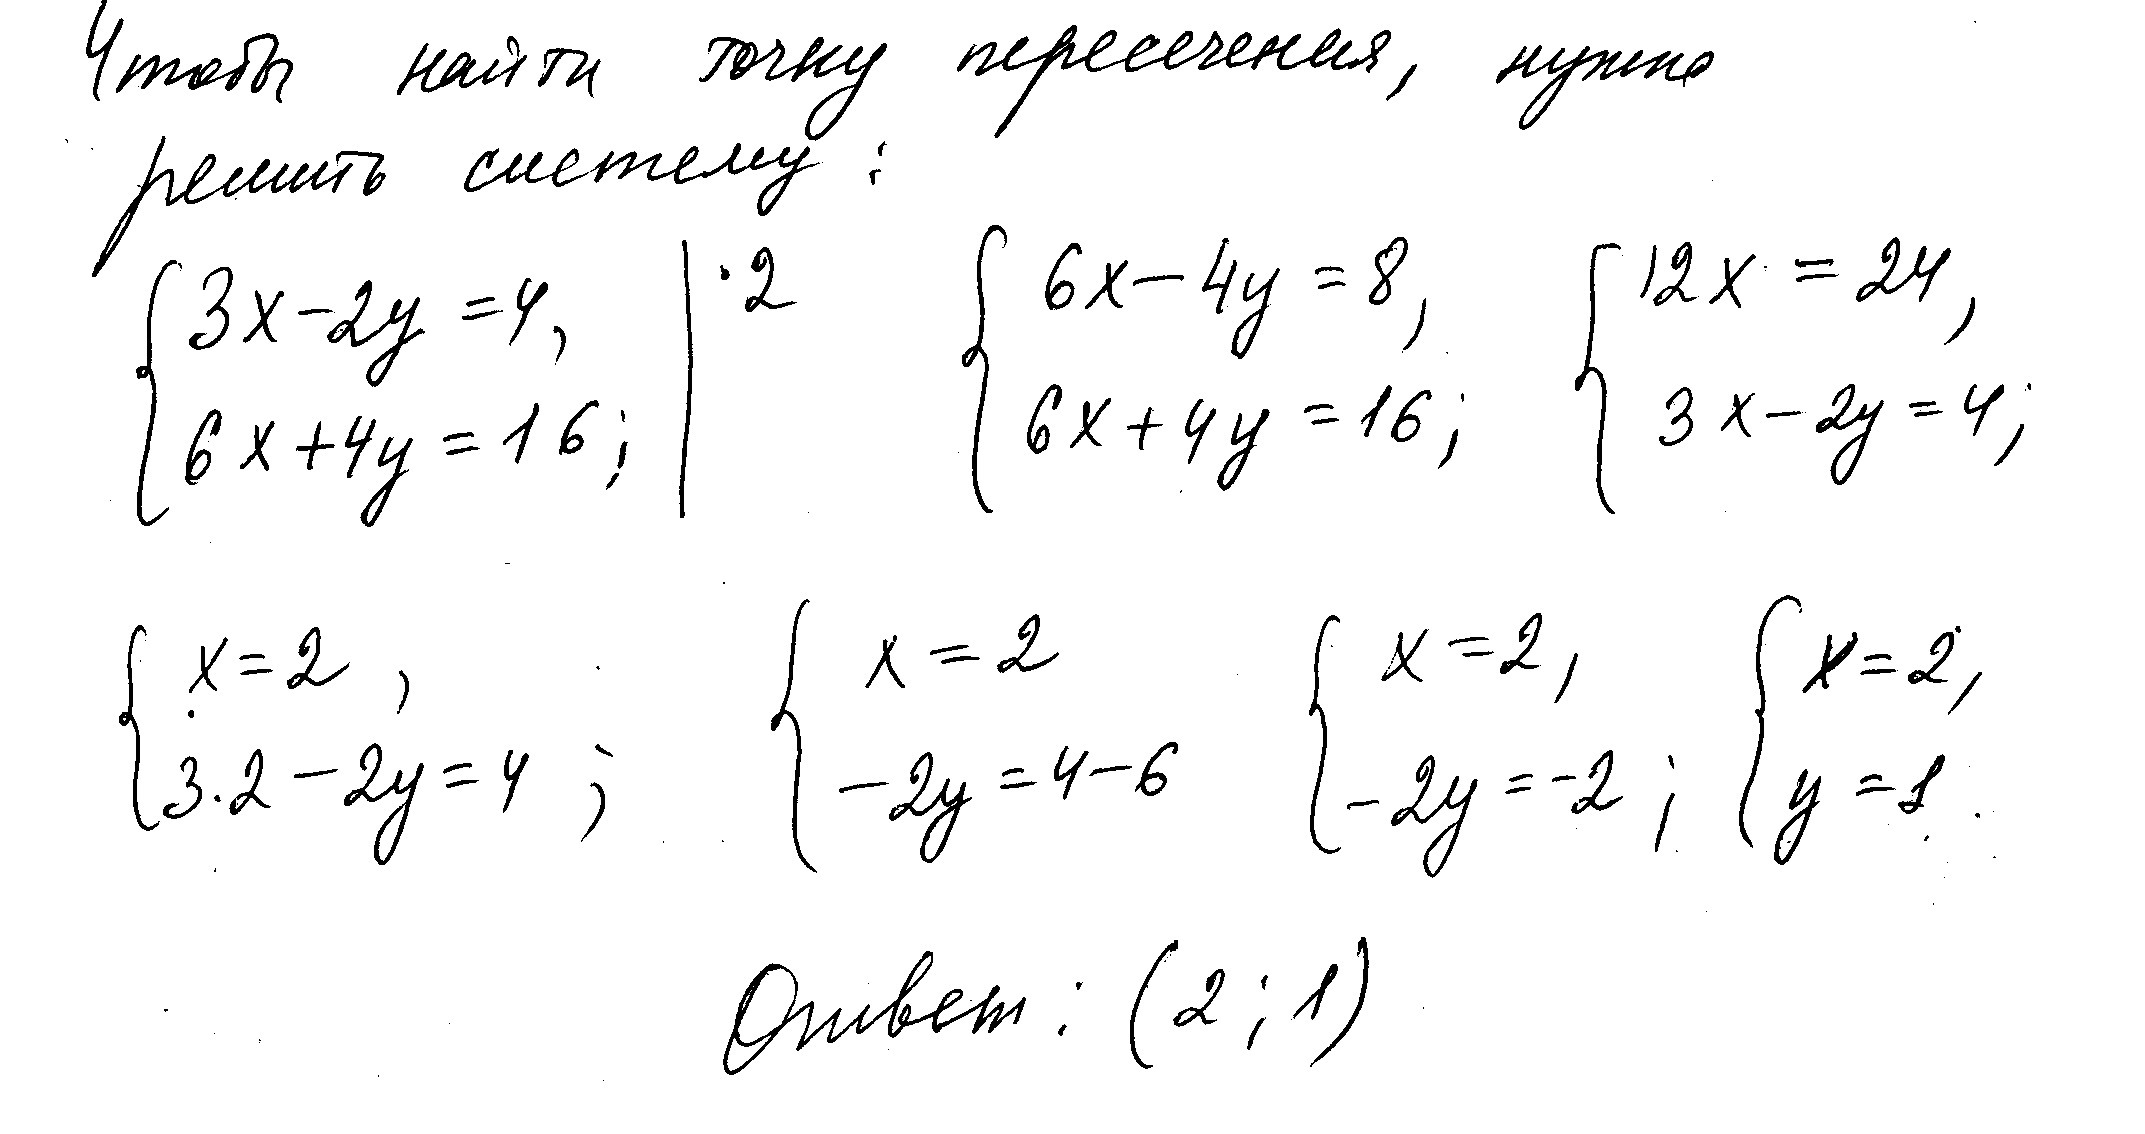 Чтобы найти точку пересечения, нужно
решить систему:
{ 3x-2y=4, | ·2 { 6x-4y=8, { 12x=24,
{ 6x+4y=16; | { 6x+4y=16; { 3x-2y=4;
{ x=2, { x=2 { x=2, { x=2,
{ 3·2-2y=4; { -2y=4-6 { -2y=-2; { y=1.
Ответ: (2;1)